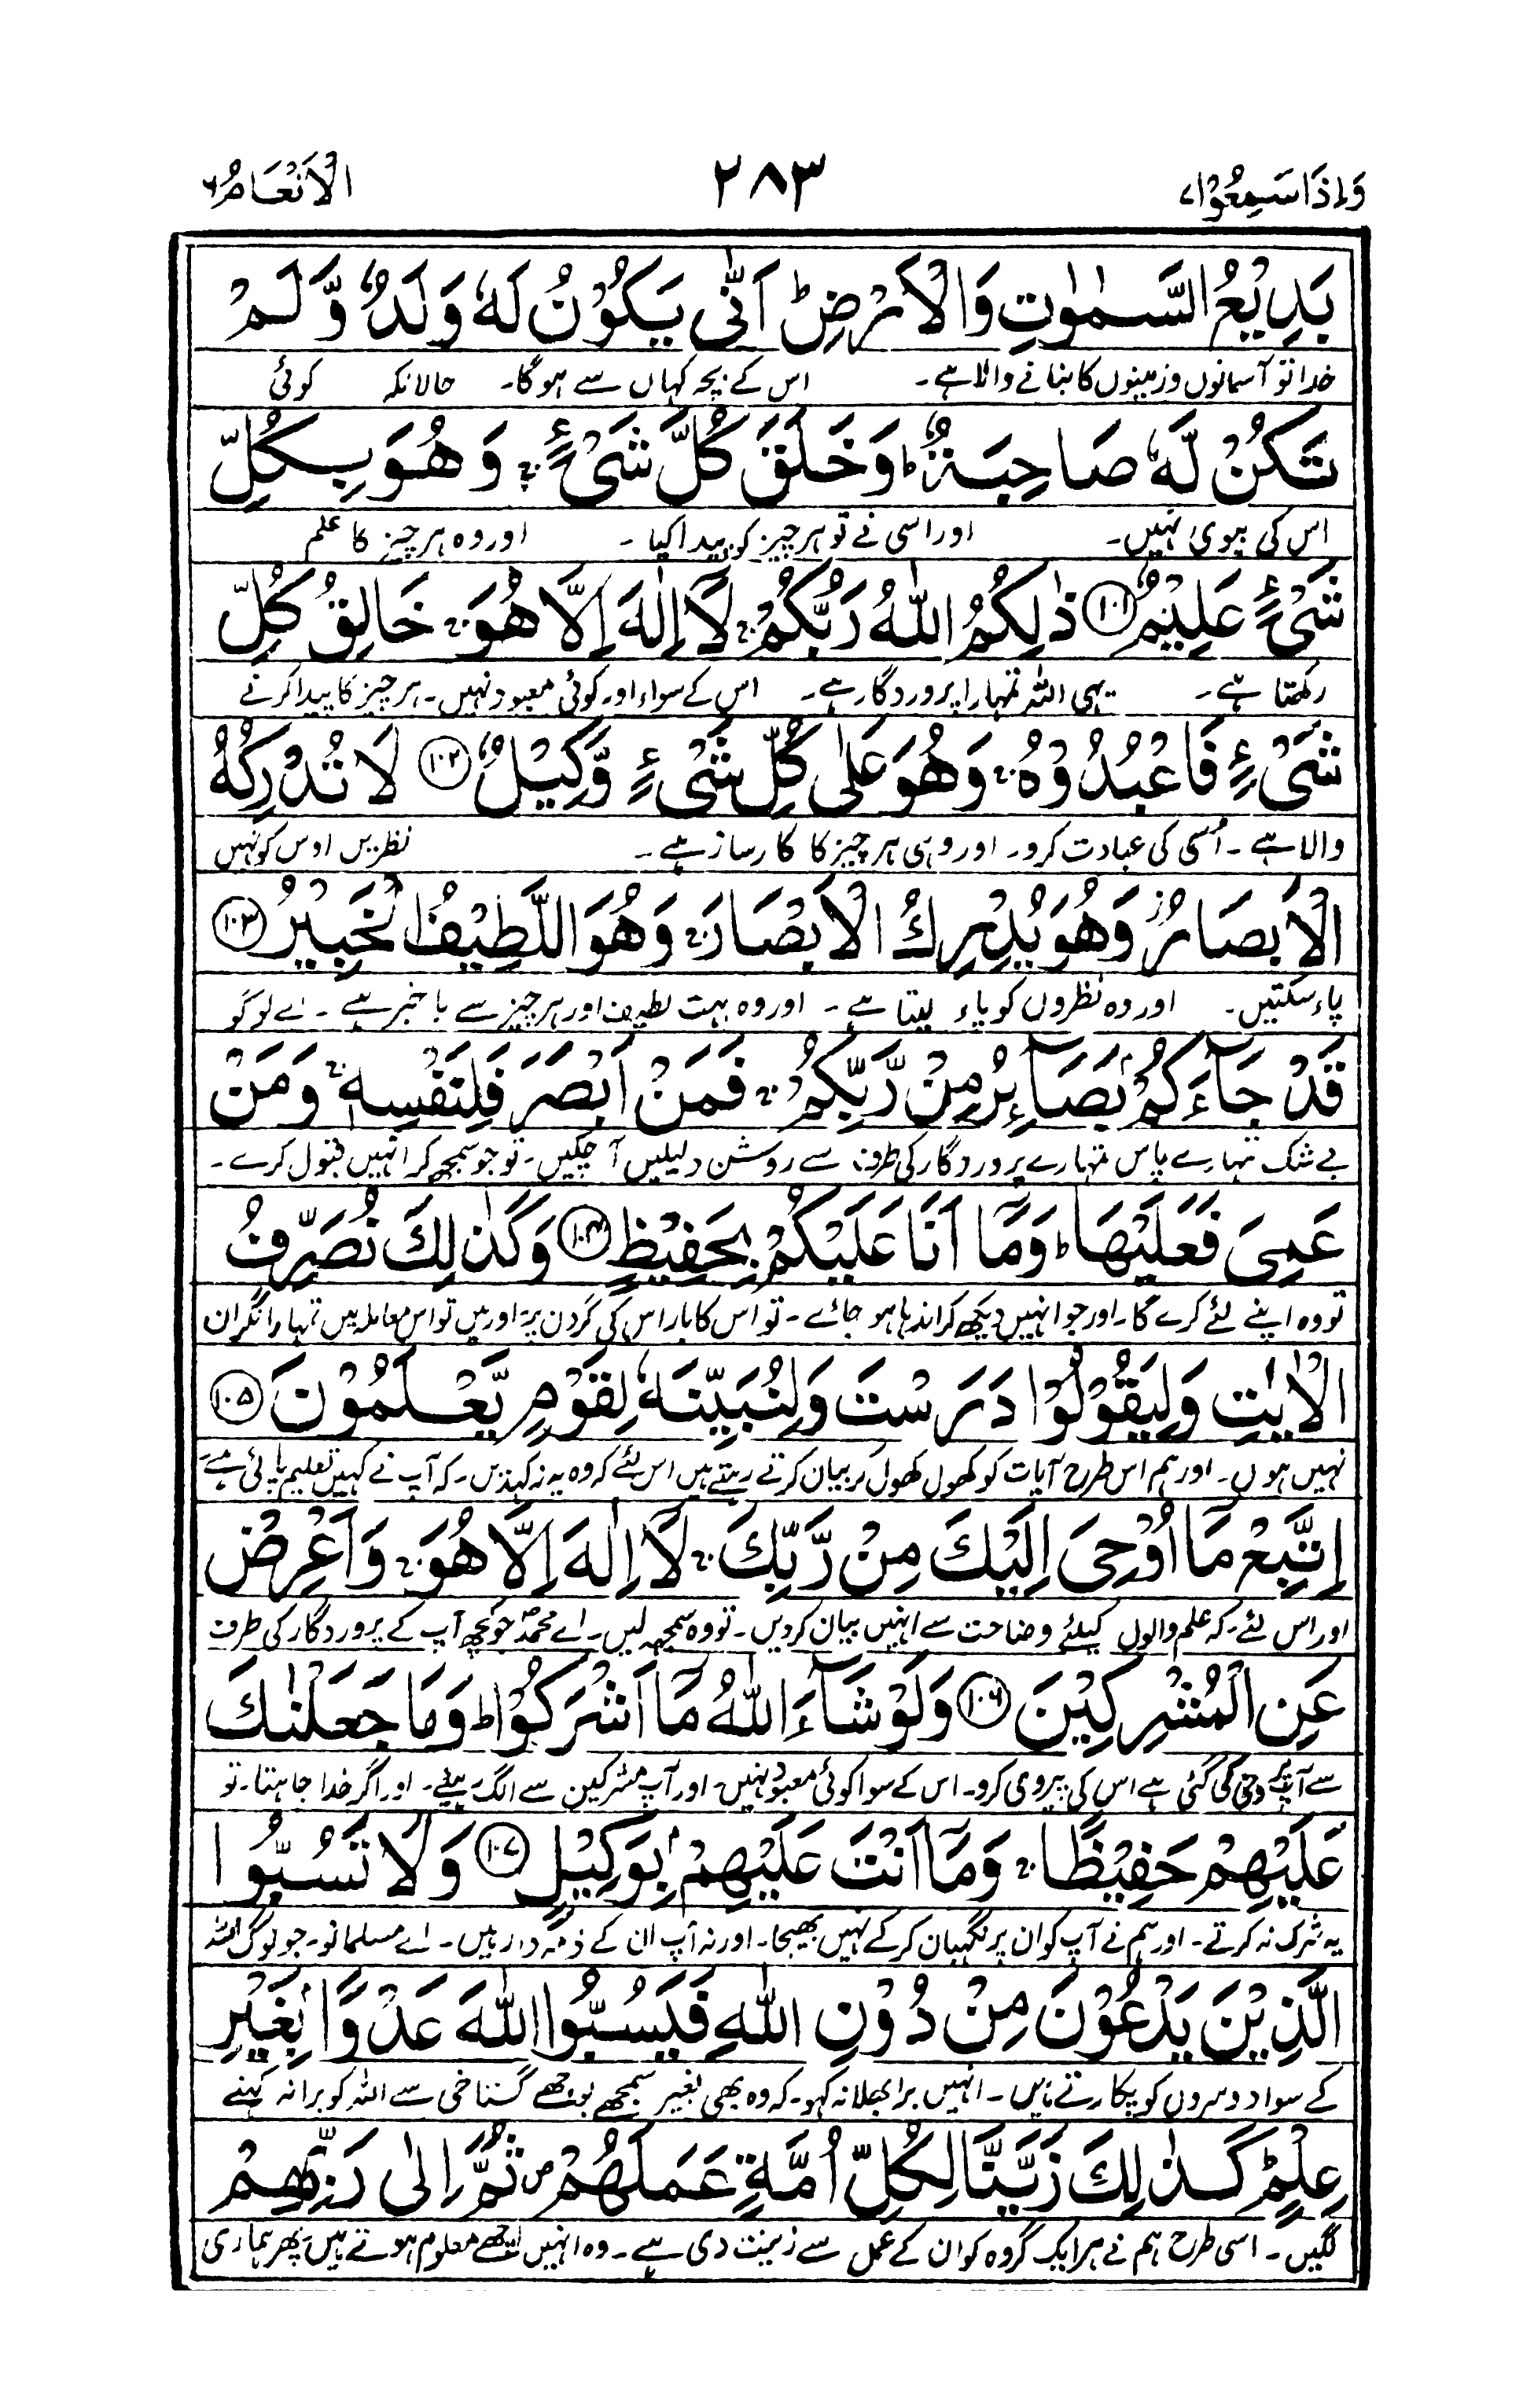 وَاِذَا سَمِعُوْا۷ ۲۸۳ الْاَنْعَام۶
بَدِيْعُ السَّمٰوٰتِ وَالْاَرْضِ ؕ اَنّٰى يَكُوْنُ لَهٗ وَلَدٌ وَّلَمْ
خدا تو آسمانوں و زمینوں کا بنانے والا ہے۔ اس کے بچہ کہاں سے ہوگا۔ حالانکہ کوئی
تَكُنْ لَّهٗ صَاحِبَةٌ ؕ وَخَلَقَ كُلَّ شَيْءٍ ۚ وَهُوَ بِكُلِّ
اس کی بیوی نہیں۔ اور اسی نے تو ہر چیز کو پیدا کیا۔ اور وہ ہر چیز کا علم
شَيْءٍ عَلِيْمٌ ۱۰۱ ذٰلِكُمُ اللّٰهُ رَبُّكُمْ ۚ لَاۤ اِلٰهَ اِلَّا هُوَ ۚ خَالِقُ كُلِّ
رکھتا ہے۔ یہی اللہ تمہارا پروردگار ہے۔ اس کے سواء اور کوئی معبود نہیں۔ ہر چیز کا پیدا کرنے
شَيْءٍ فَاعْبُدُوْهُ ۚ وَهُوَ عَلٰى كُلِّ شَيْءٍ وَّكِيْلٌ ۱۰۲ لَا تُدْرِكُهُ
والا ہے۔ اُسی کی عبادت کرو۔ اور وہی ہر چیز کا کارساز ہے۔ نظریں اوس کو نہیں
الْاَبْصَارُ ۫ وَهُوَ يُدْرِكُ الْاَبْصَارَ ۚ وَهُوَ اللَّطِيْفُ الْخَبِيْرُ ۱۰۳
پاء سکتیں۔ اور وہ نظروں کو پاء لیتا ہے۔ اور وہ بہت لطیف اور ہر چیز سے با خبر ہے۔ اے لوگو
قَدْ جَآءَكُمْ بَصَآئِرُ مِنْ رَّبِّكُمْ ۚ فَمَنْ اَبْصَرَ فَلِنَفْسِهٖ ۚ وَمَنْ
بے شک تمہارے پاس تمہارے پروردگار کی طرف سے روشن دلیلیں آ چکیں۔ تو جو سمجھ کر انہیں قبول کرے۔
عَمِيَ فَعَلَيْهَا ؕ وَمَاۤ اَنَا عَلَيْكُمْ بِحَفِيْظٍ ۱۰۴ وَكَذٰلِكَ نُصَرِّفُ
تو وہ اپنے لئے کرے گا۔ اور جو انہیں دیکھ کر اندھا ہو جائے۔ تو اس کا بار اس کی گردن پر اور میں تو اس معاملہ میں تمہارا نگران
الْاٰيٰتِ وَلِيَقُوْلُوْا دَرَسْتَ وَلِنُبَيِّنَهٗ لِقَوْمٍ يَّعْلَمُوْنَ ۱۰۵
نہیں ہوں۔ اور ہم اس طرح آیات کو کھول کھول کر بیان کرتے رہتے ہیں اس لئے کہ وہ یہ نہ کہدیں۔ کہ آپ نے کہیں تعلیم پائی ہے
اِتَّبِعْ مَاۤ اُوْحِيَ اِلَيْكَ مِنْ رَّبِّكَ ۚ لَاۤ اِلٰهَ اِلَّا هُوَ ۚ وَاَعْرِضْ
اور اس لئے۔ کہ علم والوں کیلئے وضاحت سے انہیں بیان کردیں۔ تو وہ سمجھ لیں۔ اے محمدؐ جو کچھ آپ کے پروردگار کی طرف
عَنِ الْمُشْرِكِيْنَ ۱۰۶ وَلَوْ شَآءَ اللّٰهُ مَاۤ اَشْرَكُوْا ؕ وَمَا جَعَلْنٰكَ
سے آپ پر وحی کی گئی ہے اس کی پیروی کرو۔ اس کے سوا کوئی معبود نہیں۔ اور آپ مشرکین سے الگ رہیئے۔ اور اگر خدا چاہتا۔ تو
عَلَيْهِمْ حَفِيْظًا ۚ وَمَاۤ اَنْتَ عَلَيْهِمْ بِوَكِيْلٍ ۱۰۷ وَلَا تَسُبُّوا
یہ شرک نہ کرتے۔ اور ہم نے آپ کو ان پر نگہبان کرکے نہیں بھیجا۔ اور نہ آپ ان کے ذمہ دار ہیں۔ اے مسلمانو۔ جو لوگ اللہ
الَّذِيْنَ يَدْعُوْنَ مِنْ دُوْنِ اللّٰهِ فَيَسُبُّوا اللّٰهَ عَدْوًۢا بِغَيْرِ
کے سوا دوسروں کو پکارتے ہیں۔ انہیں برا بھلا نہ کہو۔ کہ وہ بھی بغیر سمجھے بوجھے گستاخی سے اللہ کو برا نہ کہنے
عِلْمٍ ؕ كَذٰلِكَ زَيَّنَّا لِكُلِّ اُمَّةٍ عَمَلَهُمْ ۪ ثُمَّ اِلٰى رَبِّهِمْ
لگیں۔ اسی طرح ہم نے ہر ایک گروہ کو ان کے عمل سے زینت دی ہے۔ وہ انہیں اچھے معلوم ہوتے ہیں۔ پھر ہماری